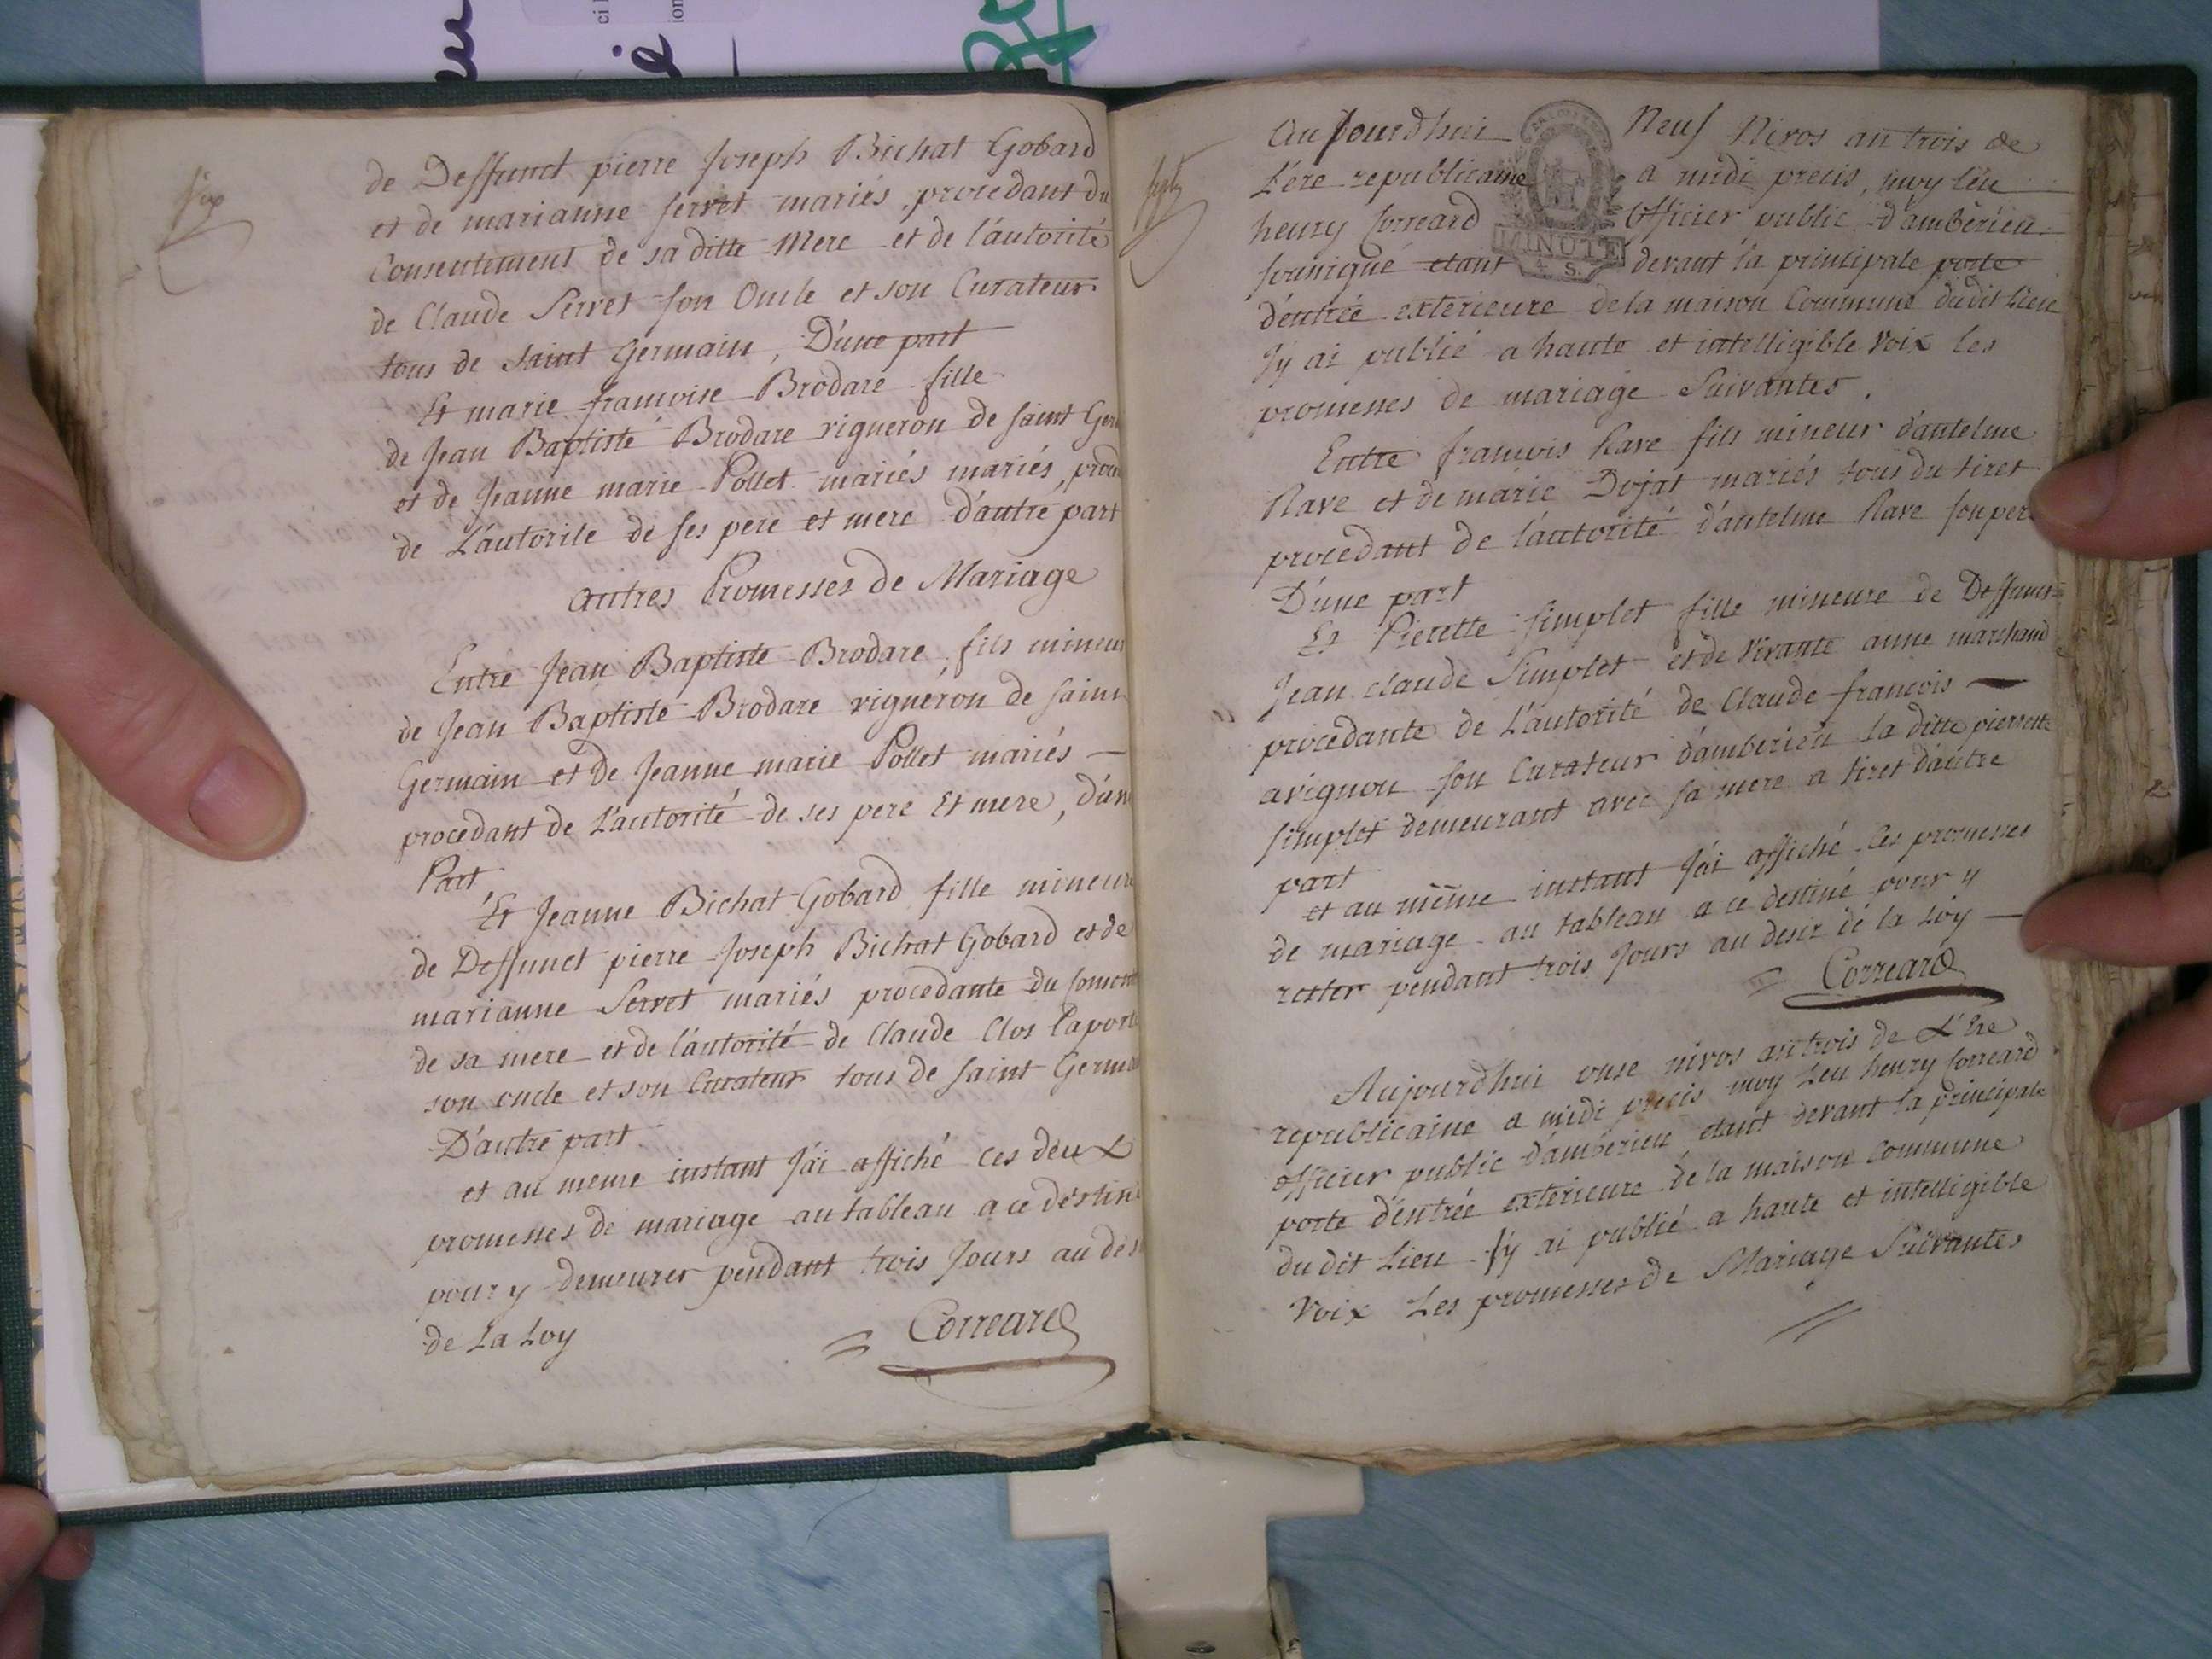 six
de Deffunct pierre Joseph Bichat Gobard
et de marianne Servet mariés, procedant du
Consentement de sa ditte Mere et de l'autorité
de Claude Servet son Oncle et son Curateur
tous de Saint Germain, D'une part
Et marie francoise Brodare fille
de Jean Baptiste Brodare vigneron de saint Ger
et de Jeanne marie Pollet mariés mariés, proce
de L'autorite de ses pere et mere d'autre part
autres Promesses de Mariage
Entre Jean Baptiste Brodare, fils mineur
de Jean Baptiste Brodare vigneron de saint
Germain et de Jeanne marie Pollet mariés —
procedant de L'autorité de ses pere Et mere, d'une
Part
Et Jeanne Bichat Gobard fille mineure
de Deffunct pierre Joseph Bichat Gobard et de
marianne Servet mariés procedante du
de sa mere et de l'autorité de Claude Clos Laporte
son oncle et son Curateur tous de saint Germain
D'autre part
et au meme instant J'ai affiché ces deux
promesses de mariage au tableau a ce destiné
pour y demeurer pendant trois Jours au des
de La Loy
= Correard
sept
Aujourdhui Neuf Nivos an trois de
L'ére republicaine a midi precis, moy leu
henry Correard Officier public D'amberieu
sousigné etant devant la principale porte
d'entrée exterieure de la maison Commune dudit Lieu
J'y ai publié a haute et intelligible voix les
promesses de mariage Suivantes.
MINUTE
4. S.
Entre francois Rave fils mineur d'antelme
Rave et de marie Dujat mariés tous du tiret
procedant de l'autorité d'antelme Rave son pere
D'une part
Et Pierette Simplet fille mineure de Deffunct
Jean claude Simplet et de vivante anne marchand
procedante de L'autorité de Claude francois —
avignon son Curateur d'amberieu la ditte pierrette
simplet demeurant avec sa mere a tiret d'autre
part
et au même instant J'ai affiché ces promesses
de mariage au tableau a ce destiné pour y
rester pendant trois Jours au desir de la Loy —
= Correard
Aujourdhui onse nivos an trois de L'Ere
republicaine a midi precis moy Leu henry Correard
officier public D'amberieu etant devant la principale
porte d'entrée exterieure de la maison Commune
du dit Lieu J'y ai publié a haute et intelligible
Voix Les promesses de Mariage Suivantes